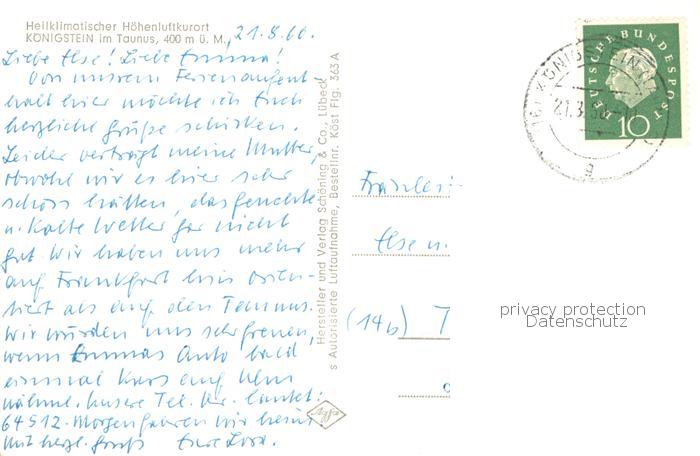 Heilklimatischer Höhenluftkurort
KÖNIGSTEIN im Taunus, 400 m ü. M., 21.8.60.
Liebe Else! Liebe Emma!
Von unserem Ferienaufent-
halt hier möchte ich Euch
herzliche Grüße schicken.
Leider verträgt meine Mutter,
obwohl wir es hier sehr
schön hätten, das feuchte
u. kalte Wetter gar nicht
gut. Wir haben uns mehr
auf Frankfurt hin orien-
tiert als auf den Taunus.
Wir würden uns sehr freuen,
wenn Emmas Auto bald
einmal Kurs auf
nähme. Unsere Tel. Nr. lautet:
64512. Morgen fahren wir heim
Mit herzl. Gruß Eure Lora.
Hersteller und Verlag Schöning & Co., Lübeck
s Autorisierte Luftaufnahme, Bestellnr. Köst Flg. 363 A
Fräulei
Else u.
(14b) T
DEUTSCHE BUNDESPOST
10
KÖNIGSTEIN
privacy protection
Datenschutz